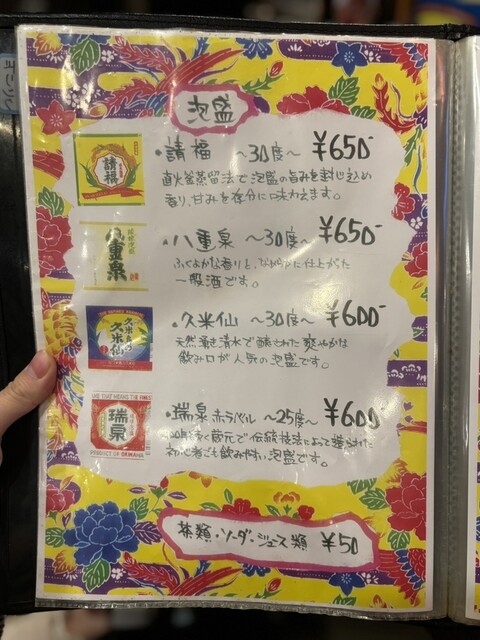 泡盛
請福
・請福 ～30度～ ¥650-
直火釜蒸留法で泡盛の旨みを封じ込め
香り、甘みを存分に味わえます。
八重泉
・八重泉 ～30度～ ¥650-
ふくよかな香りと、なめらかに仕上がった
一般酒です。
久米島の
久米仙
・久米仙 ～30度～ ¥600-
天然湧き清水で醸された爽やかな
飲み口が人気の泡盛です。
瑞泉
PRODUCT OF OKINAWA
・瑞泉 赤ラベル ～25度～ ¥600-
続く蔵元で伝統技法によって造られた
初心者でも飲みやすい泡盛です。
茶類・ソーダ・ジュース類 ¥50